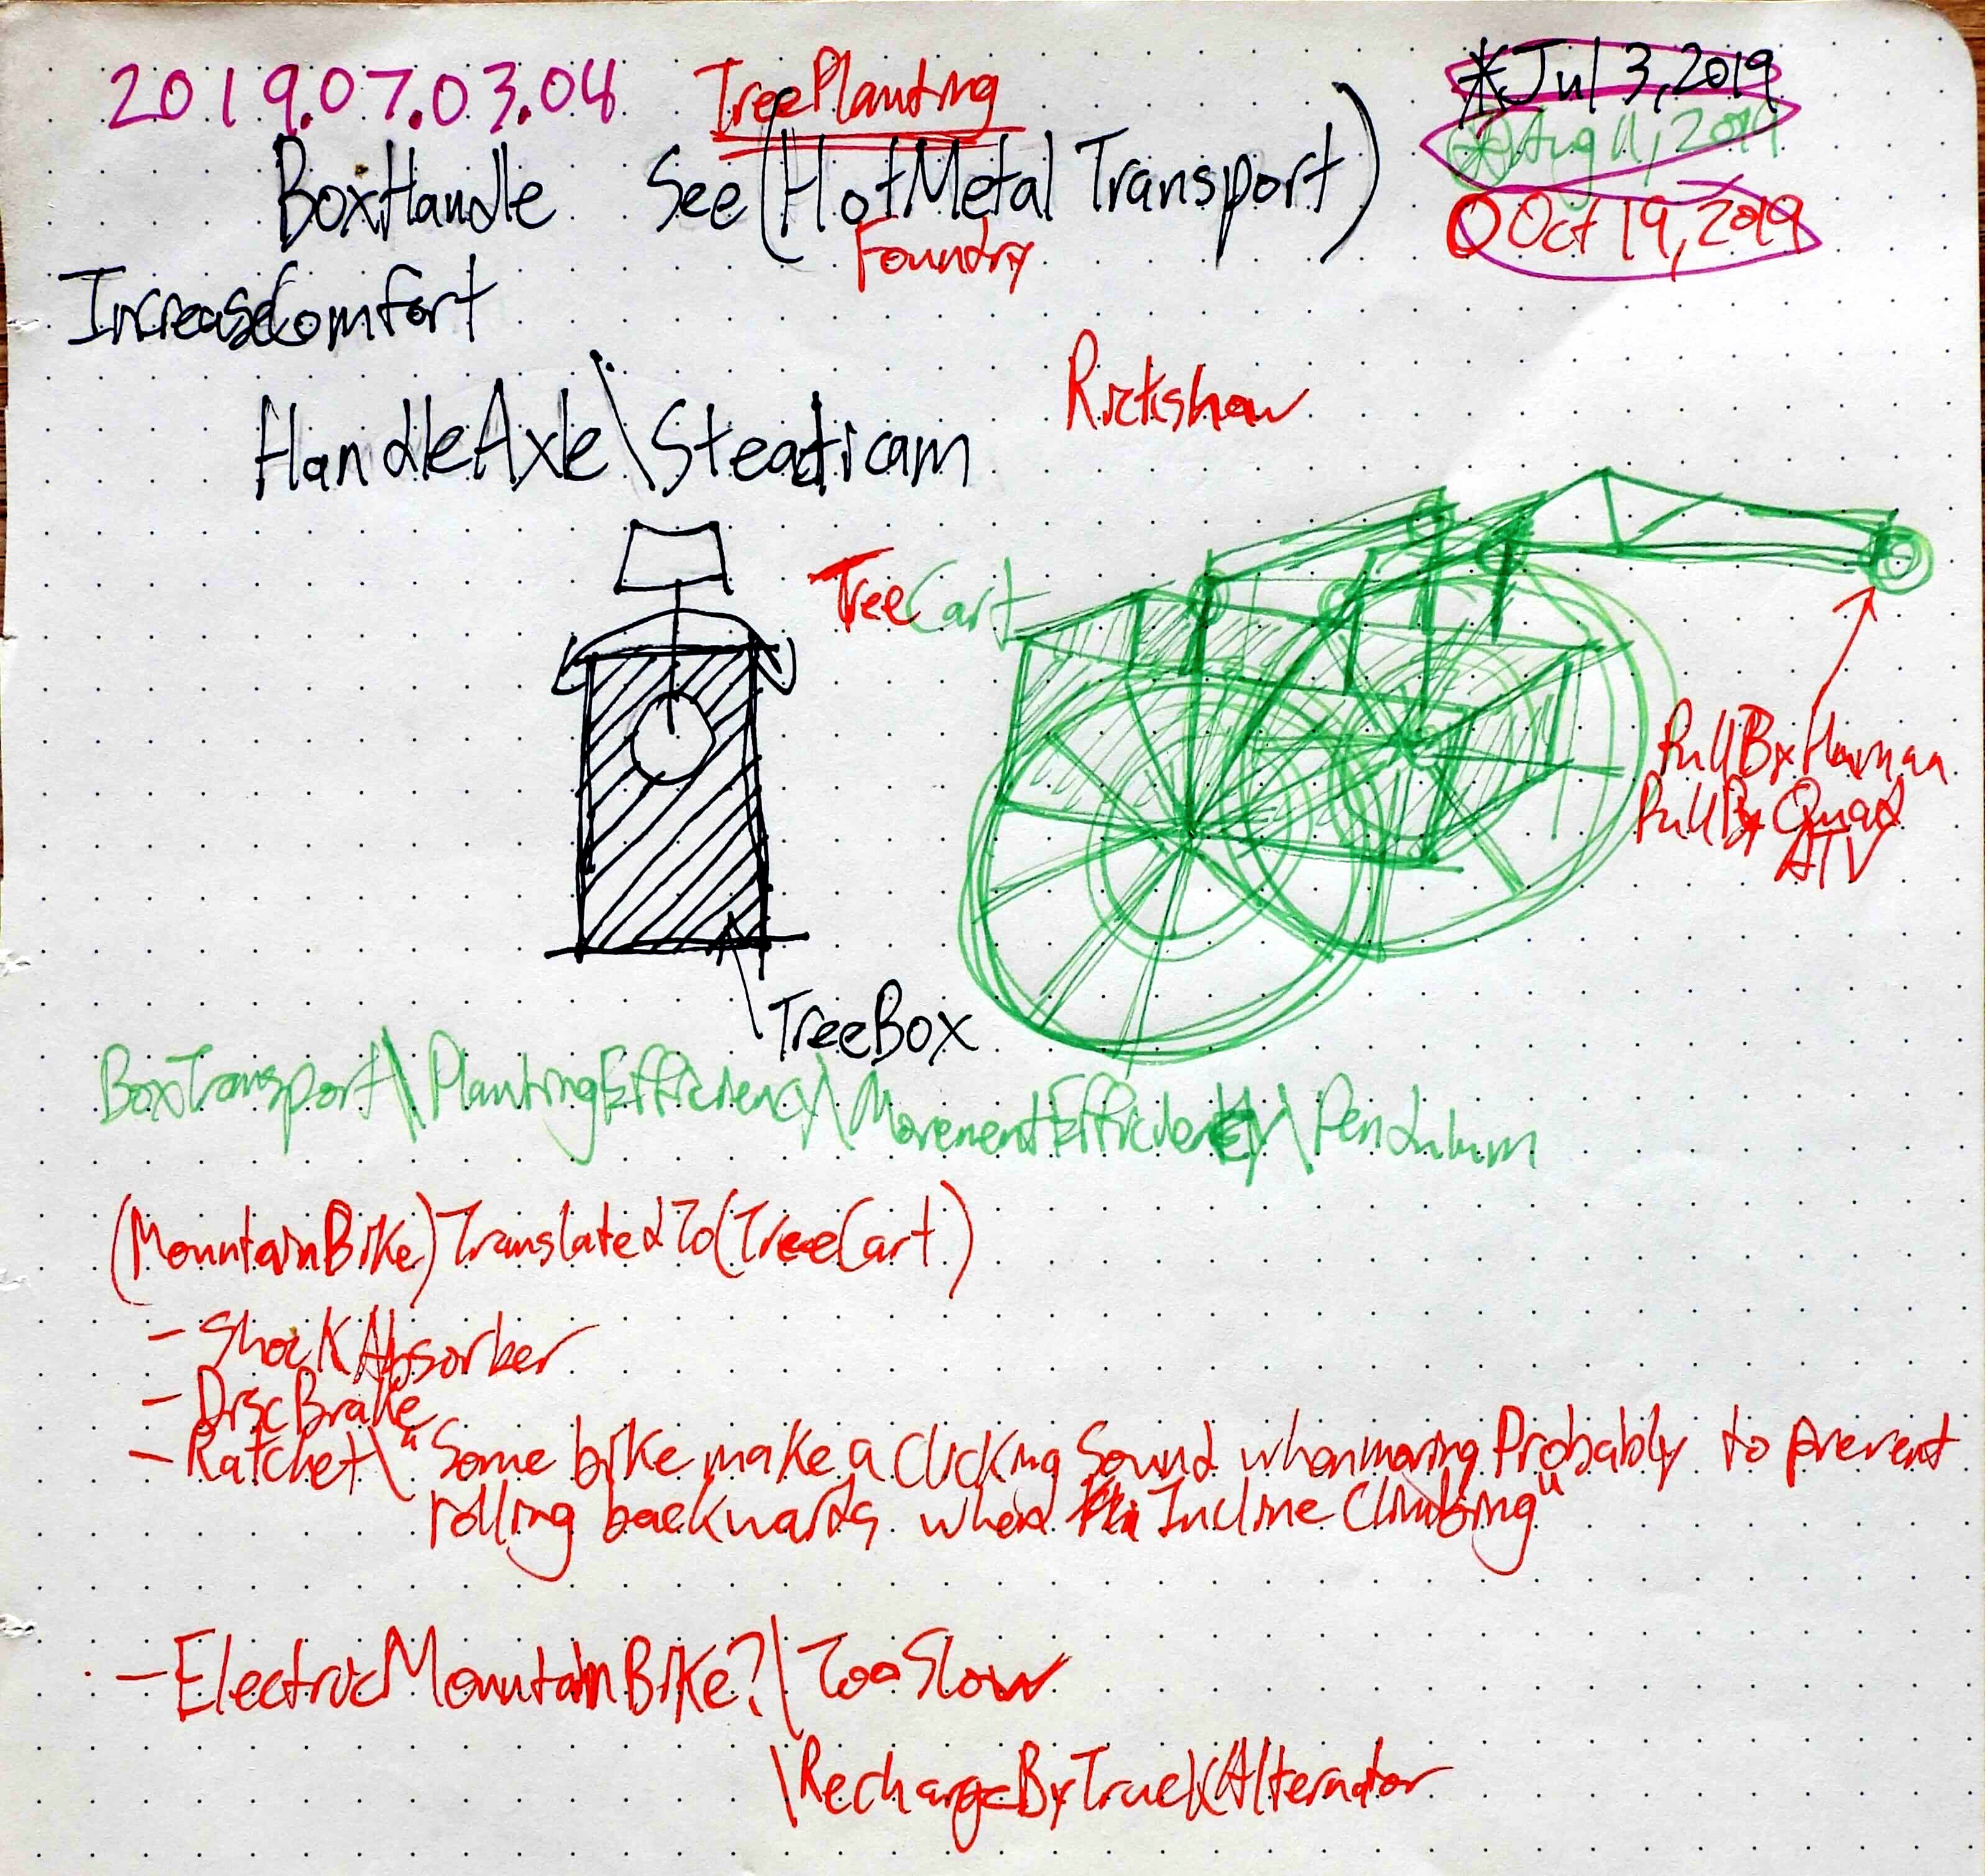 2019.07.03.04 TreePlanting *Jul 3, 2019
*Aug 11, 2019
BoxHandle See (HotMetal Transport)
Foundry
Oct 19, 2019
IncreaseComfort
Rickshaw
HandleAxle\Steadicam
TreeCart
PullByHuman
PullBy Quad
ATV
TreeBox
BoxTransport\PlantingEfficiency\MovementEfficiency\Pendulum
(MountainBike)TranslatedTo(TreeCart)
- ShockAbsorber
- DiscBrake
- Ratchet\"Some bike make a Clicking Sound when moving Probably to prevent
rolling backwards when Incline Climbing"
- ElectricMountainBike?\TooSlow
\RechargeByTruckAlternator